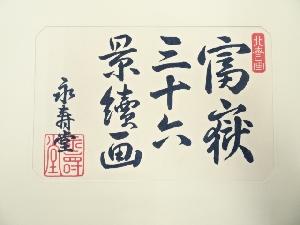 北斎画
富嶽
三十六
景續画
永寿堂
永寿堂